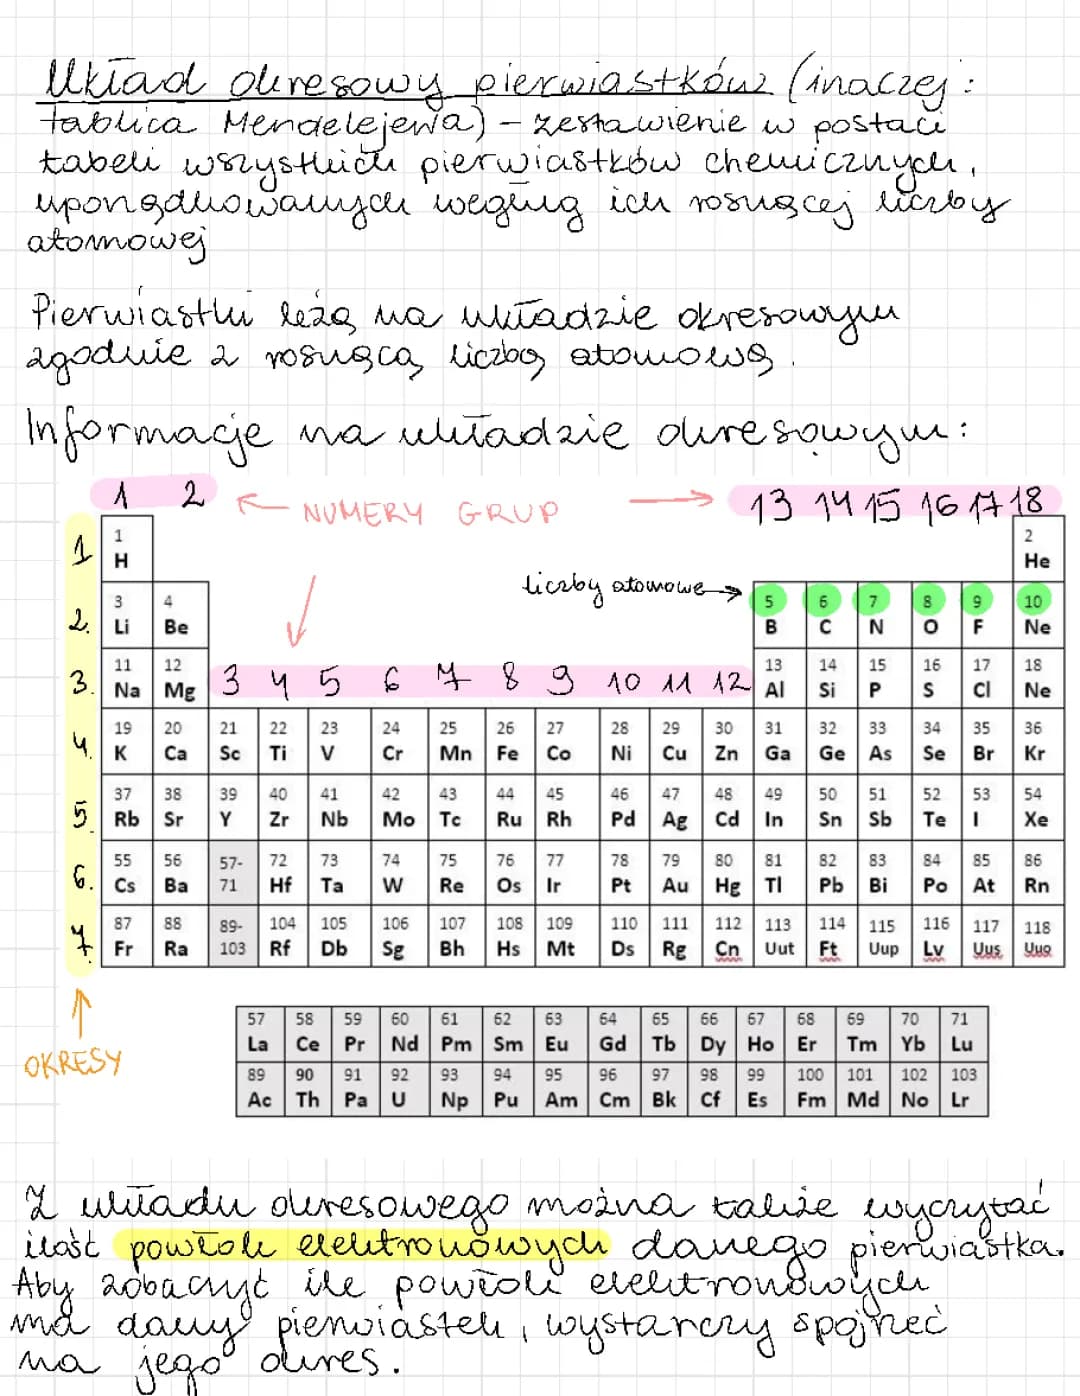 Układ okresowy pierwiastków (inaczej:
tablica Mendelejewa) – zestawienie w postaci
tabeli wszystkich pierwiastków chemicznych,
uporządkowanych według ich rosnącej liczby
atomowej
Pierwiastki leżą na układzie okresowym
zgodnie z rosnącą liczbą atomową.
Informacje na układzie okresowym:
1 2 ← NUMERY GRUP → 13 14 15 16 17 18
1 1 2
H He
liczby atomowe →
2. 3 4 5 6 7 8 9 10
Li Be B C N O F Ne
3. 11 12 3 4 5 6 7 8 9 10 11 12 13 14 15 16 17 18
Na Mg Al Si P S Cl Ne
4. 19 20 21 22 23 24 25 26 27 28 29 30 31 32 33 34 35 36
K Ca Sc Ti V Cr Mn Fe Co Ni Cu Zn Ga Ge As Se Br Kr
5. 37 38 39 40 41 42 43 44 45 46 47 48 49 50 51 52 53 54
Rb Sr Y Zr Nb Mo Tc Ru Rh Pd Ag Cd In Sn Sb Te I Xe
6. 55 56 57- 72 73 74 75 76 77 78 79 80 81 82 83 84 85 86
Cs Ba 71 Hf Ta W Re Os Ir Pt Au Hg Tl Pb Bi Po At Rn
7. 87 88 89- 104 105 106 107 108 109 110 111 112 113 114 115 116 117 118
Fr Ra 103 Rf Db Sg Bh Hs Mt Ds Rg Cn Uut Ft Uup Lv Uus Uuo
↑
OKRESY
57 58 59 60 61 62 63 64 65 66 67 68 69 70 71
La Ce Pr Nd Pm Sm Eu Gd Tb Dy Ho Er Tm Yb Lu
89 90 91 92 93 94 95 96 97 98 99 100 101 102 103
Ac Th Pa U Np Pu Am Cm Bk Cf Es Fm Md No Lr
Z układu okresowego można także wyczytać
ilość powłok elektronowych danego pierwiastka.
Aby zobaczyć ile powłok elektronowych
ma dany pierwiastek, wystarczy spojrzeć
na jego okres.